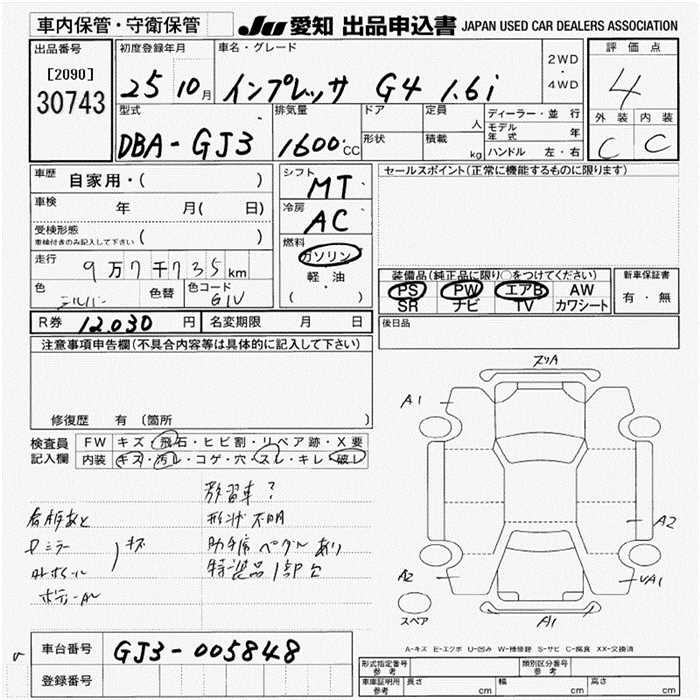 車内保管・守衛保管
JU 愛知 出品申込書 JAPAN USED CAR DEALERS ASSOCIATION
出品番号
[2090]
30743
初度登録年月
25 10月
車名・グレード
インプレッサ G4 1.6i
2WD
・
4WD
評価点
4
外装 内装
C C
型式
DBA-GJ3
排気量
1600cc
ドア
形状
定員
人
積載
kg
ディーラー・並行
モデル年式 年
ハンドル 左・右
車歴
自家用・( )
車検
年 月( 日)
受検形態
車検付きのみ記入して下さい ( )
走行
9万7千735km
色
シルバー
色替
色コード
G1U
シフト
MT
冷房
AC
燃料
ガソリン
軽・油
( ・ )
セールスポイント(正常に機能するものに限ります)
装備品(純正品に限り○をつけてください)
PS PW エアB AW
SR ナビ TV カワシート
新車保証書
有・無
R券 12,030 円
名変期限 月 日
後日品
注意事項申告欄(不具合内容等は具体的に記入して下さい)
修復歴 有 〔箇所
検査員記入欄
FW キズ・飛石・ヒビ割・リペア跡・X要
内装 キズ・汚レ・コゲ・穴・スレ・キレ・破レ
教習車?
看板あと
形状不明
ロミラー
キズ
助手席ペダルあり
外ホイール
特装品1部欠
ボディーAL
スリA
A1
A2
A2
UA1
A1
スペア
A-キズ E-エクボ U-凹み W-補修跡 S-サビ C-腐食 XX-交換済
車台番号
GJ3-005848
登録番号
形式指定番号
参考
類別区分番号
参考
車庫証明用
参考
長さ cm
幅 cm
高さ cm